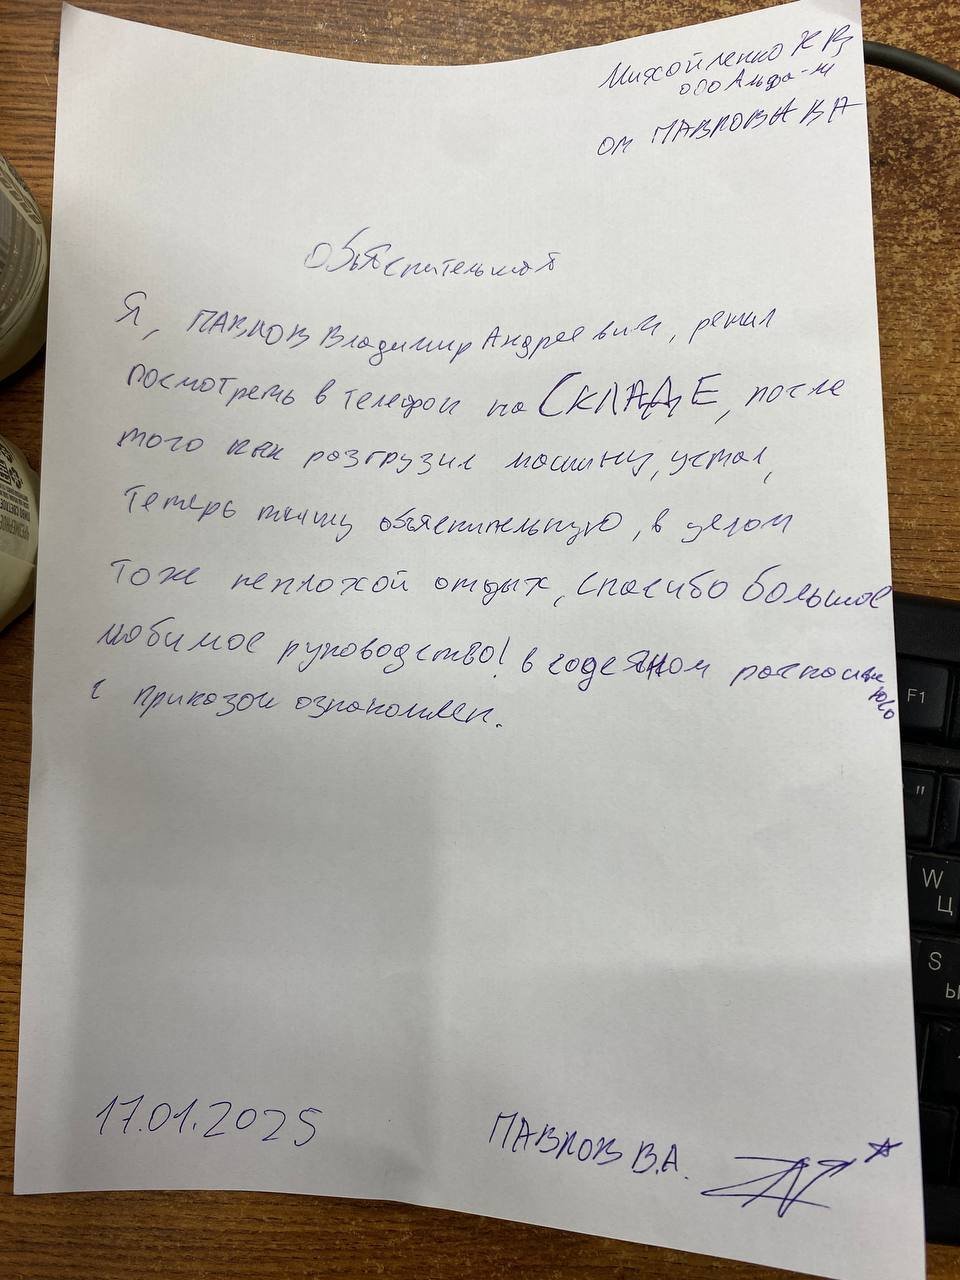 Михайленко К В
ООО Альфа-М
от ПАВЛОВА В А
объяснительная
Я, ПАВЛОВ Владимир Андреевич, решил
посмотреть в телефон на СКЛАДЕ, после
того как разгрузил машину, устал,
теперь пишу объяснительную, в целом
тоже неплохой отдых, спасибо большое
любимое руководство! в содеяном раскаиваюсь
с приказом ознакомлен.
17.01.2025
ПАВЛОВ В.А.
F1
"
W
Ц
S
Ы